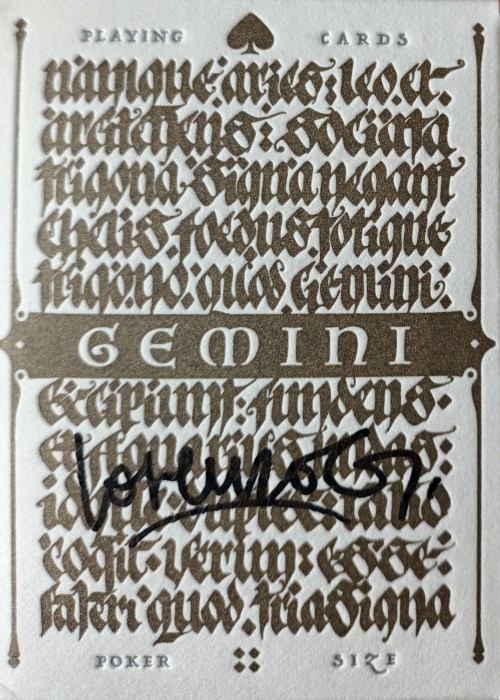 PLAYING CARDS
namque: aries: leo. et.
arcitenens: sociata
trigona signa negant
chelis. foedus totique
trigono: quod Gemini:
GEMINI
excipiunt: fundens.
et aquarius undas:
Lorenzo
duplex: ratio
cogit: verum: esse:
fateri quod tria signa
POKER SIZE